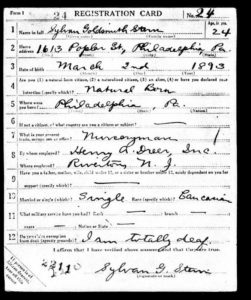 24 REGISTRATION CARD No. 24
1 Name in full Sylvan Goldsmith Stern Age, in yrs. 24
2 Home address 1613 Poplar St, Philadelphia, Pa.
3 Date of birth March 2nd 1893
4 Are you (1) a natural-born citizen, (2) a naturalized citizen, (3) an alien, (4) or have you declared your
intention (specify which)? Natural Born
5 Where were you born? Philadelphia, Pa.
6 If not a citizen, of what country are you a citizen or subject?
7 What is your present trade, occupation, or office? Nurseryman 1
8 By whom employed? Henry A Dreer, Inc.
Where employed? Riverton N. J.
9 Have you a father, mother, wife, child under 12, or a sister or brother under 12, solely dependent on you for
support (specify which)?
10 Married or single (which)? Single Race (specify which)? Caucasian
11 What military service have you had? Rank branch
years Nation or State
12 Do you claim exemption from draft (specify grounds)? I am totally deaf.
I affirm that I have verified above answers and that they are true.
Sylvan G. Stern